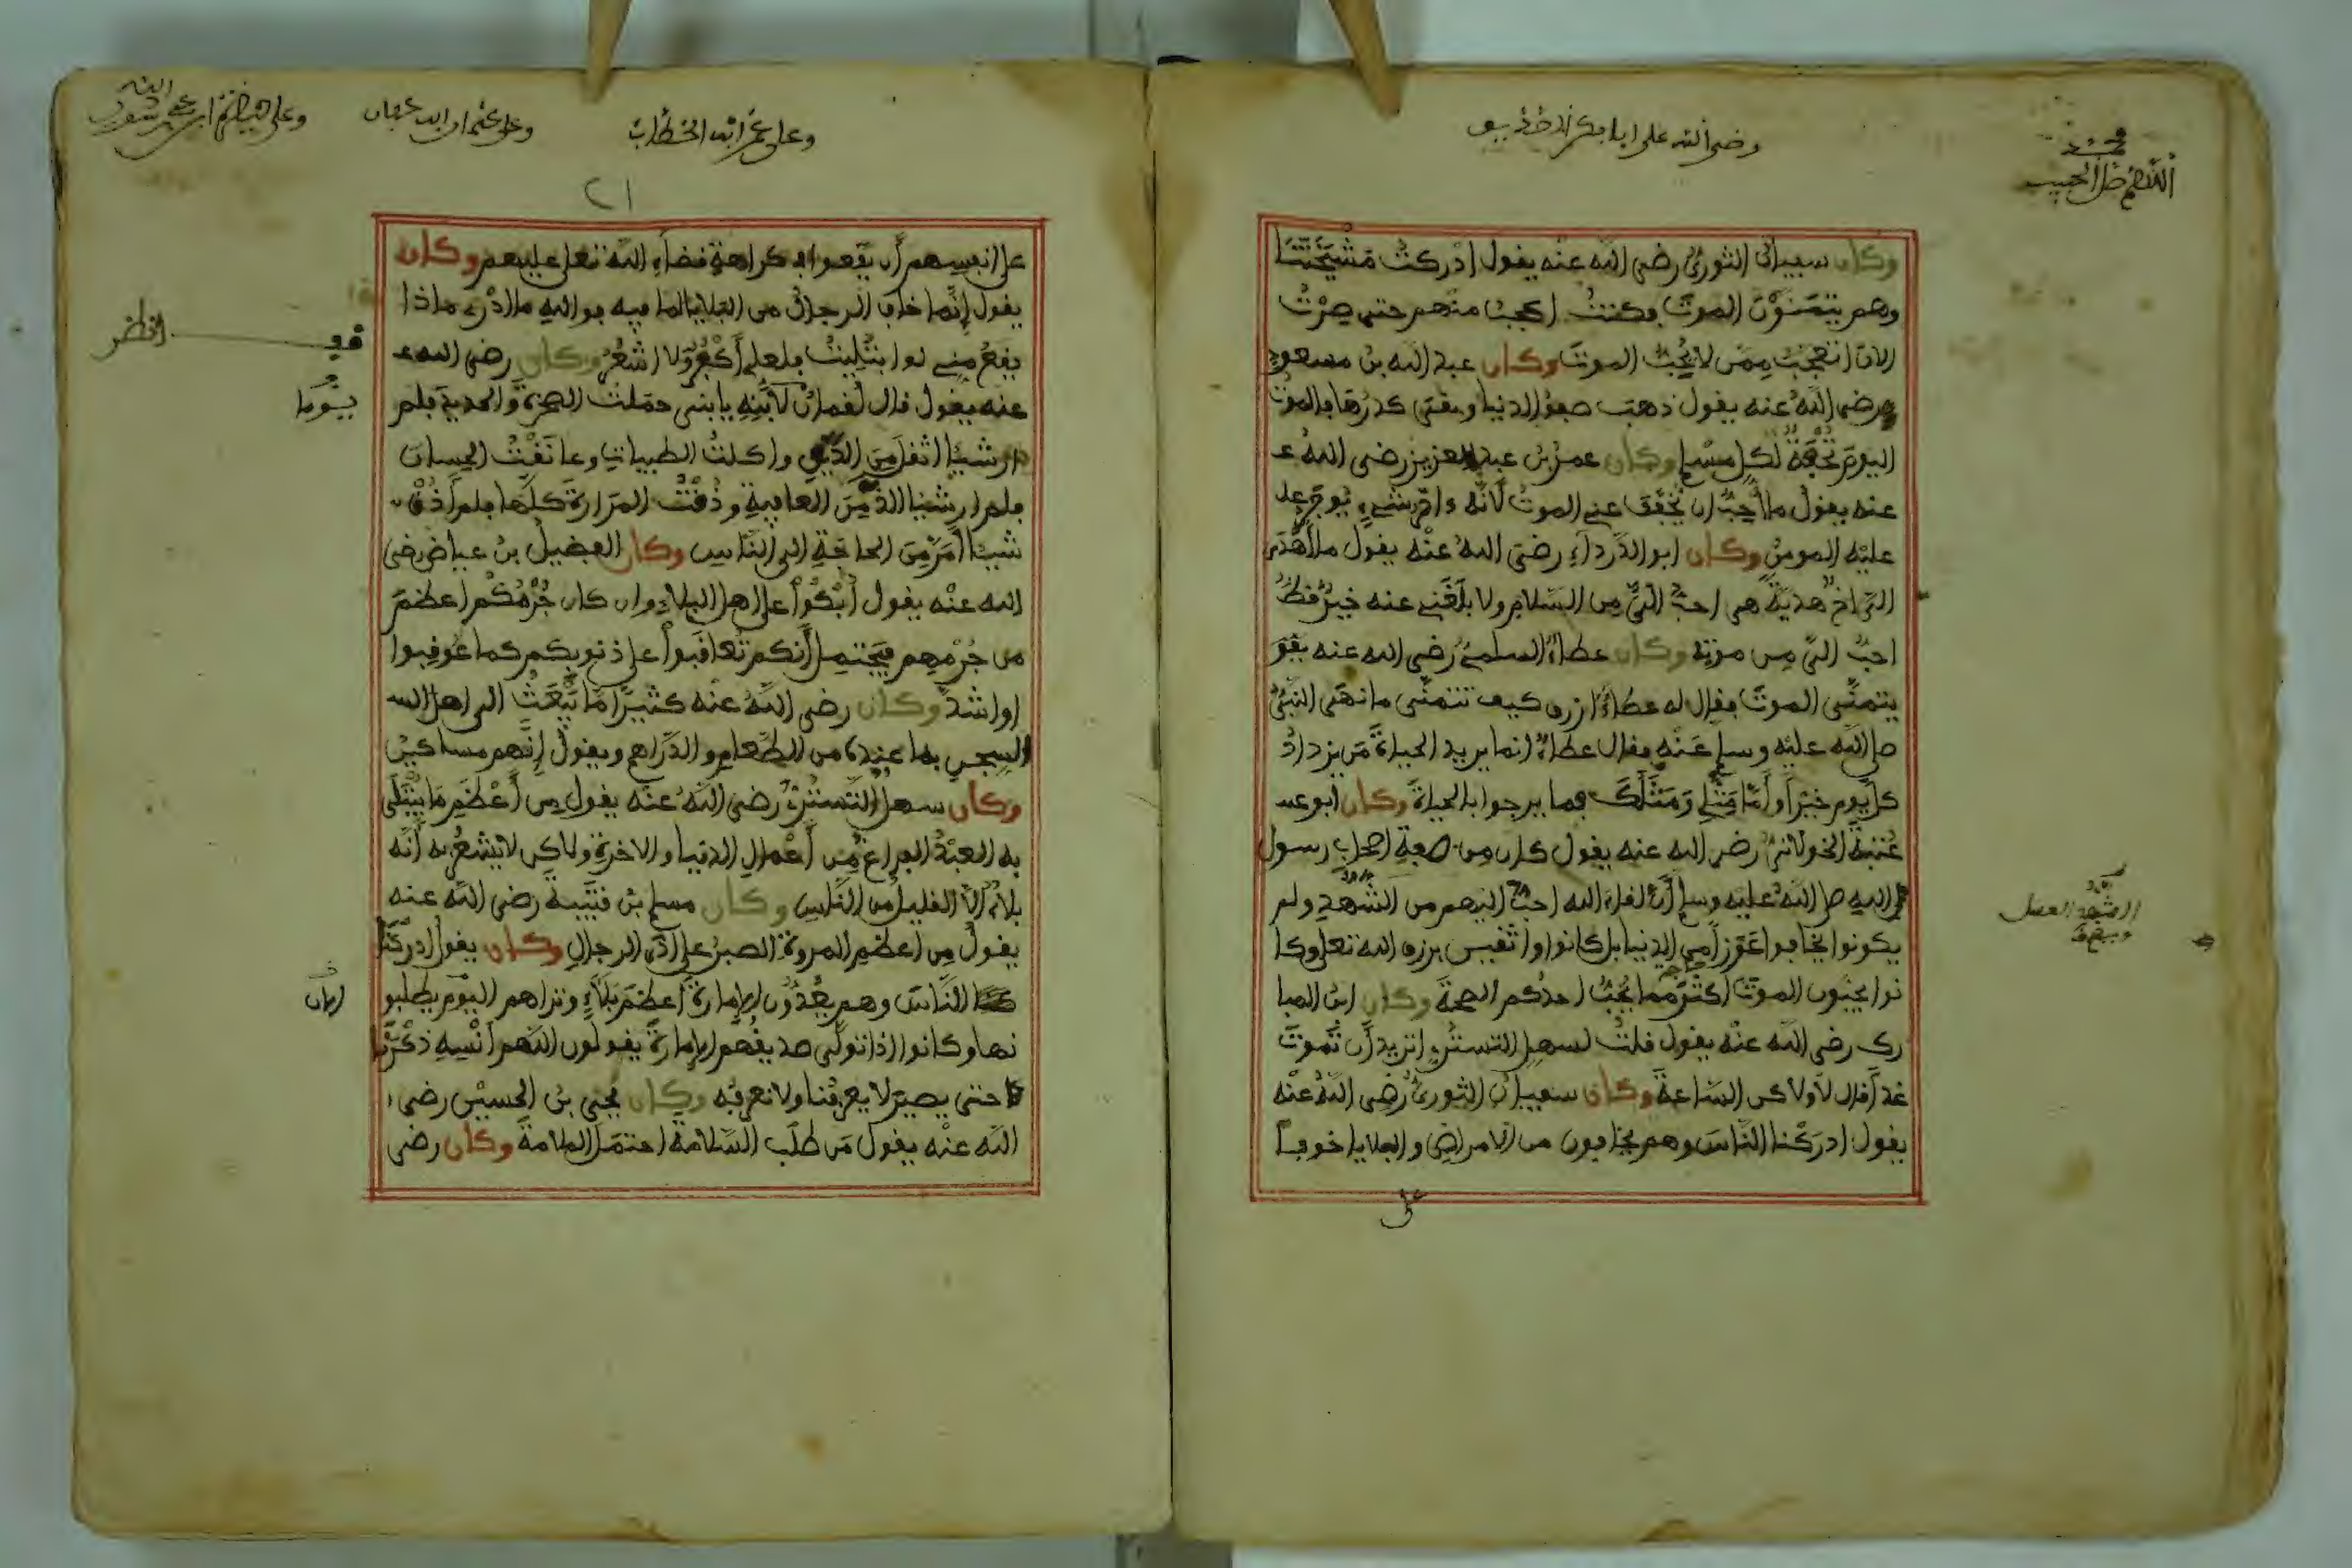 محمد
اللهم صل الحبيب
وكان سفيان الثوري رضي الله عنه يقول ادركت مشيختنا
وهم يتمنون الموت وكنت اعجب منهم حتى صرت
الان اتعجب ممن لا يحب الموت وكان عبد الله بن مسعود
رضي الله عنه يقول ذهب صفو الدنيا وبقى كدرها بالموت
اليوم تحفة لكل مسلم وكان عمر بن عبد العزيز رضي الله ع
عنه يقول ما احب ان يخفف عني الموت لانه ءاخر شيء يوجر عل
عليه المومن وكان ابو الدرداء رضي الله عنه يقول ما اهدى
الي اخ هدية هي احب الي من السلام ولا بلغني عنه خبر قط
احب الي من موته وكان عطاء السلمي رضي الله عنه يقو
يتمنى الموت فقال له عطاء ازرق كيف تتمنى ما نهى النبي
صلى الله عليه وسلم عنه فقال عطاء انما يريد الحياة من يزداد
كل يوم خيرا واما مثلي ومثلك فما يرجوا بالحياة وكان ابو عنـ
عتبة الخولاني رضي الله عنه يقول كان من صفة اصحاب رسول
الله صلى الله عليه وسلم ان لقاء الله احب اليهم من الشهد ولم
الشهد العسل
يكونوا يخافوا عوزا من الدنيا بل كانوا واثقين برزق الله تعلى وكا
نوا يحبون الموت اكثر مما يحب احدكم الصحة وكان ابن المبا
رك رضي الله عنه يقول قلت لسهل التستري اتريد ان تموت
غدا قال لا ولاكن الساعة وكان سفيان الثوري رضي الله عنه
يقول ادركنا الناس وهم يخافون من الامراض والبلايا خوفا
على
وعلى عمر ابن الخطاب
وعلى عثمان ابن عفان
٢١
على انفسهم ان يقعوا في كراهة قضاء الله تعلى عليهم وكان
يقول انما خاف الرجال من البلايا لما فيه فو الله ما ادري ماذا
يقع مني لو ابتليت فلعلي اكفر ولا اشعر وكان رضي الله ع
عنه يقول قال لقمان لابنه يا بني حملت الصخرة والحديد فلم
ار شيئا اثقل من الدين واكلت الطيبات وعانقت الحسان
فلم ار شيئا الذ من العافية وذقت المرارة كلها فلم اذق
شيئا امر من الحاجة الى الناس وكان الفضيل بن عياض رضي
الله عنه يقول ابكوا على اهل البلاء وان كان جرمكم اعظم
من جرمهم فيحتمل انكم تعاقبوا على ذنوبكم كما عوقبوا
او اشد وكان رضي الله عنه كثيرا ما يبعث الى اهل السـ
السجن بما عنده من الطعام والدراهم ويقول انهم مساكين
وكان سهل التستري رضي الله عنه يقول من اعظم ما يبتلى
به العبد الفراغ من اعمال الدنيا والاخرة ولاكن لا يشعر به انه
بلاء الا القليل من الناس وكان مسلم بن قتيبة رضي الله عنه
يقول من اعظم المروة الصبر على اذى الرجال وكان يقول ادركنا
الناس وهم يعدون الامارة اعظم بلاء وتراهم اليوم يطلبو
نها وكانوا اذا تولى صديقهم الامارة يقولون اللهم انسه ذكرنا
حتى يصير لا يعرفنا ولا نعرفه وكان يحي بن الحسين رضي
الله عنه يقول من طلب السلامة احتمل الملامة وكان رضي